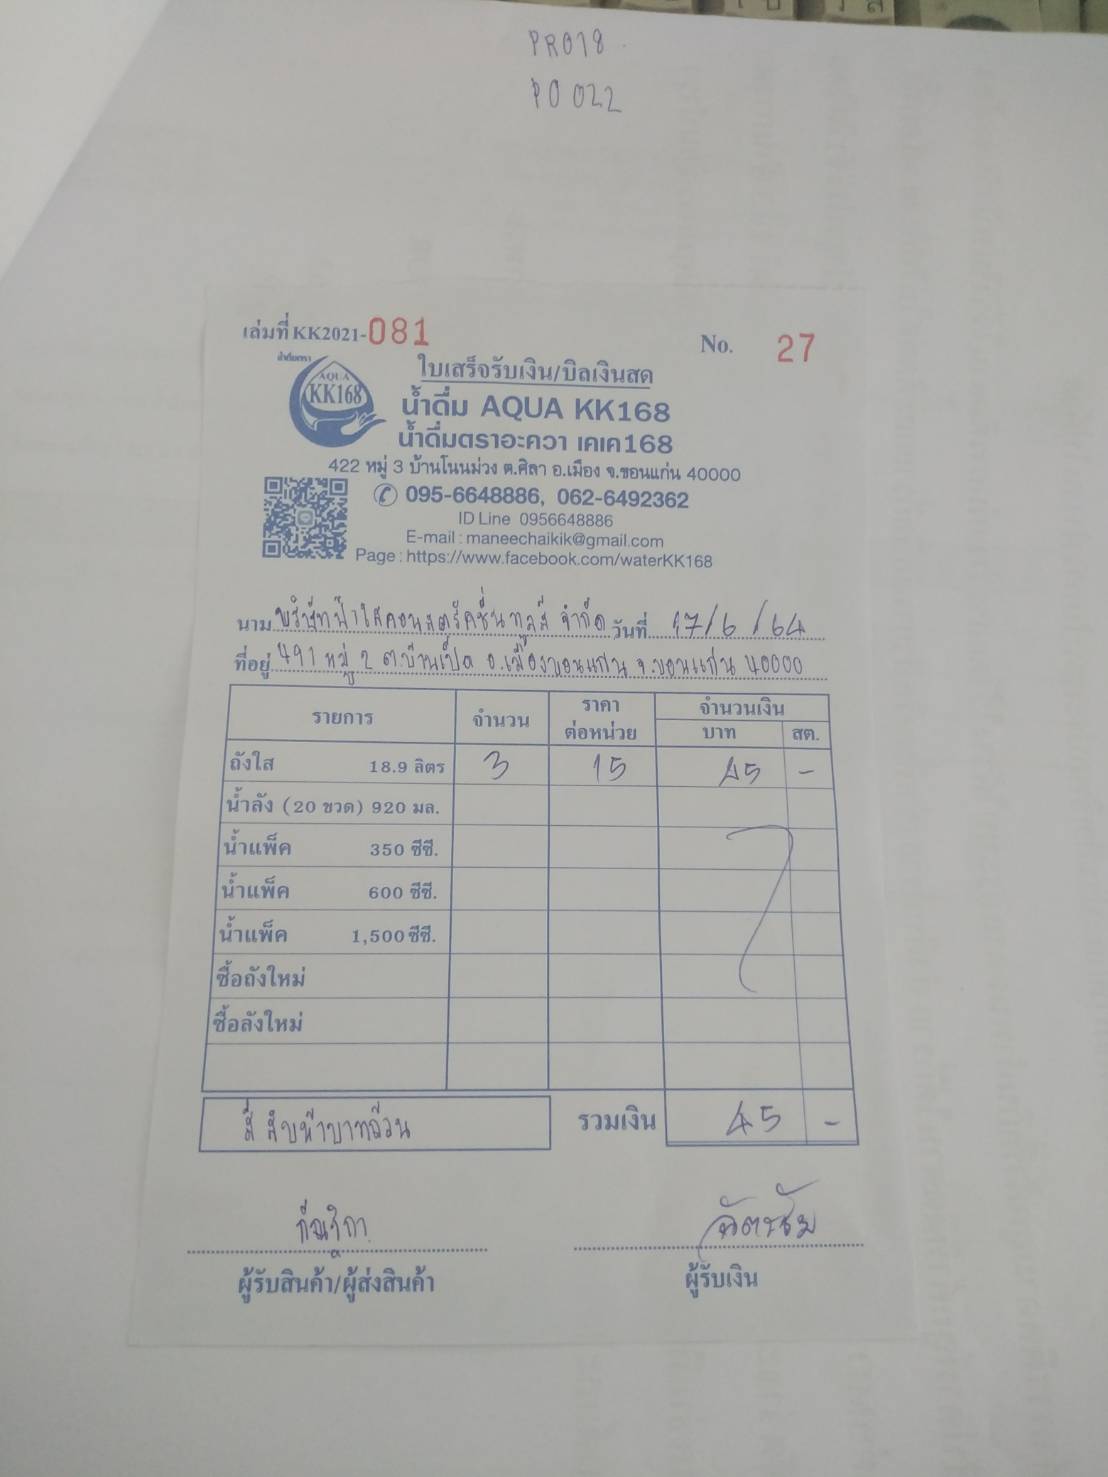 PR018
PO 022
เล่มที่ KK2021-081 No. 27
น้ำดื่มตรา
AQUA
KK168
ใบเสร็จรับเงิน/บิลเงินสด
น้ำดื่ม AQUA KK168
น้ำดื่มตราอะควา เคเค168
422 หมู่ 3 บ้านโนนม่วง ต.ศิลา อ.เมือง จ.ขอนแก่น 40000
095-6648886, 062-6492362
ID Line 0956648886
E-mail : maneechaikik@gmail.com
Page : https://www.facebook.com/waterKK168
นาม บริษัทฟ้าใสคอนสตรัคชั่นทูลส์ จำกัด วันที่ 17/6/64
ที่อยู่ 491 หมู่ 2 ต.บ้านเป็ด อ.เมืองขอนแก่น จ.ขอนแก่น 40000
รายการ จำนวน ราคา ต่อหน่วย จำนวนเงิน
บาท สต.
ถังใส 18.9 ลิตร 3 15 45 -
น้ำลัง (20 ขวด) 920 มล.
น้ำแพ็ค 350 ซีซี.
น้ำแพ็ค 600 ซีซี.
น้ำแพ็ค 1,500 ซีซี.
ซื้อถังใหม่
ซื้อลังใหม่
สี่สิบห้าบาทถ้วน รวมเงิน 45 -
ผู้รับสินค้า/ผู้ส่งสินค้า ผู้รับเงิน